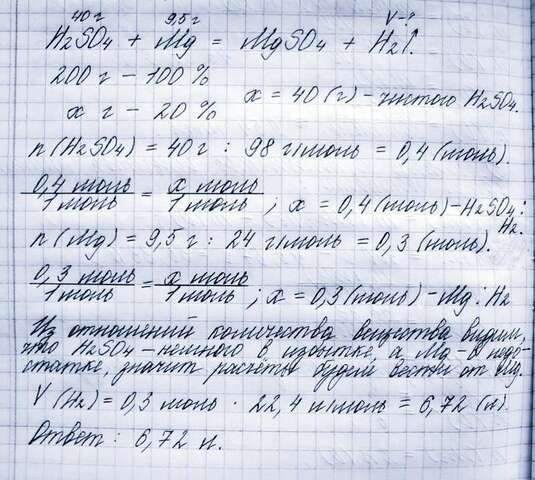 40 г 9,5 г V-?
H2SO4 + Mg = MgSO4 + H2↑.
200 г – 100 %
x г – 20 %
x = 40 (г) – чистого H2SO4.
n (H2SO4) = 40 г : 98 г/моль = 0,4 (моль).
0,4 моль / 1 моль = x моль / 1 моль ; x = 0,4 (моль) – H2SO4 : H2.
n (Mg) = 9,5 г : 24 г/моль = 0,3 (моль).
0,3 моль / 1 моль = x моль / 1 моль ; x = 0,3 (моль) – Mg : H2
Из отношений количества вещества видим,
что H2SO4 – немного в избытке, а Mg – в недо-
статке, значит расчёты будем вести от Mg.
V (H2) = 0,3 моль · 22,4 л/моль = 6,72 (л).
Ответ : 6,72 л.